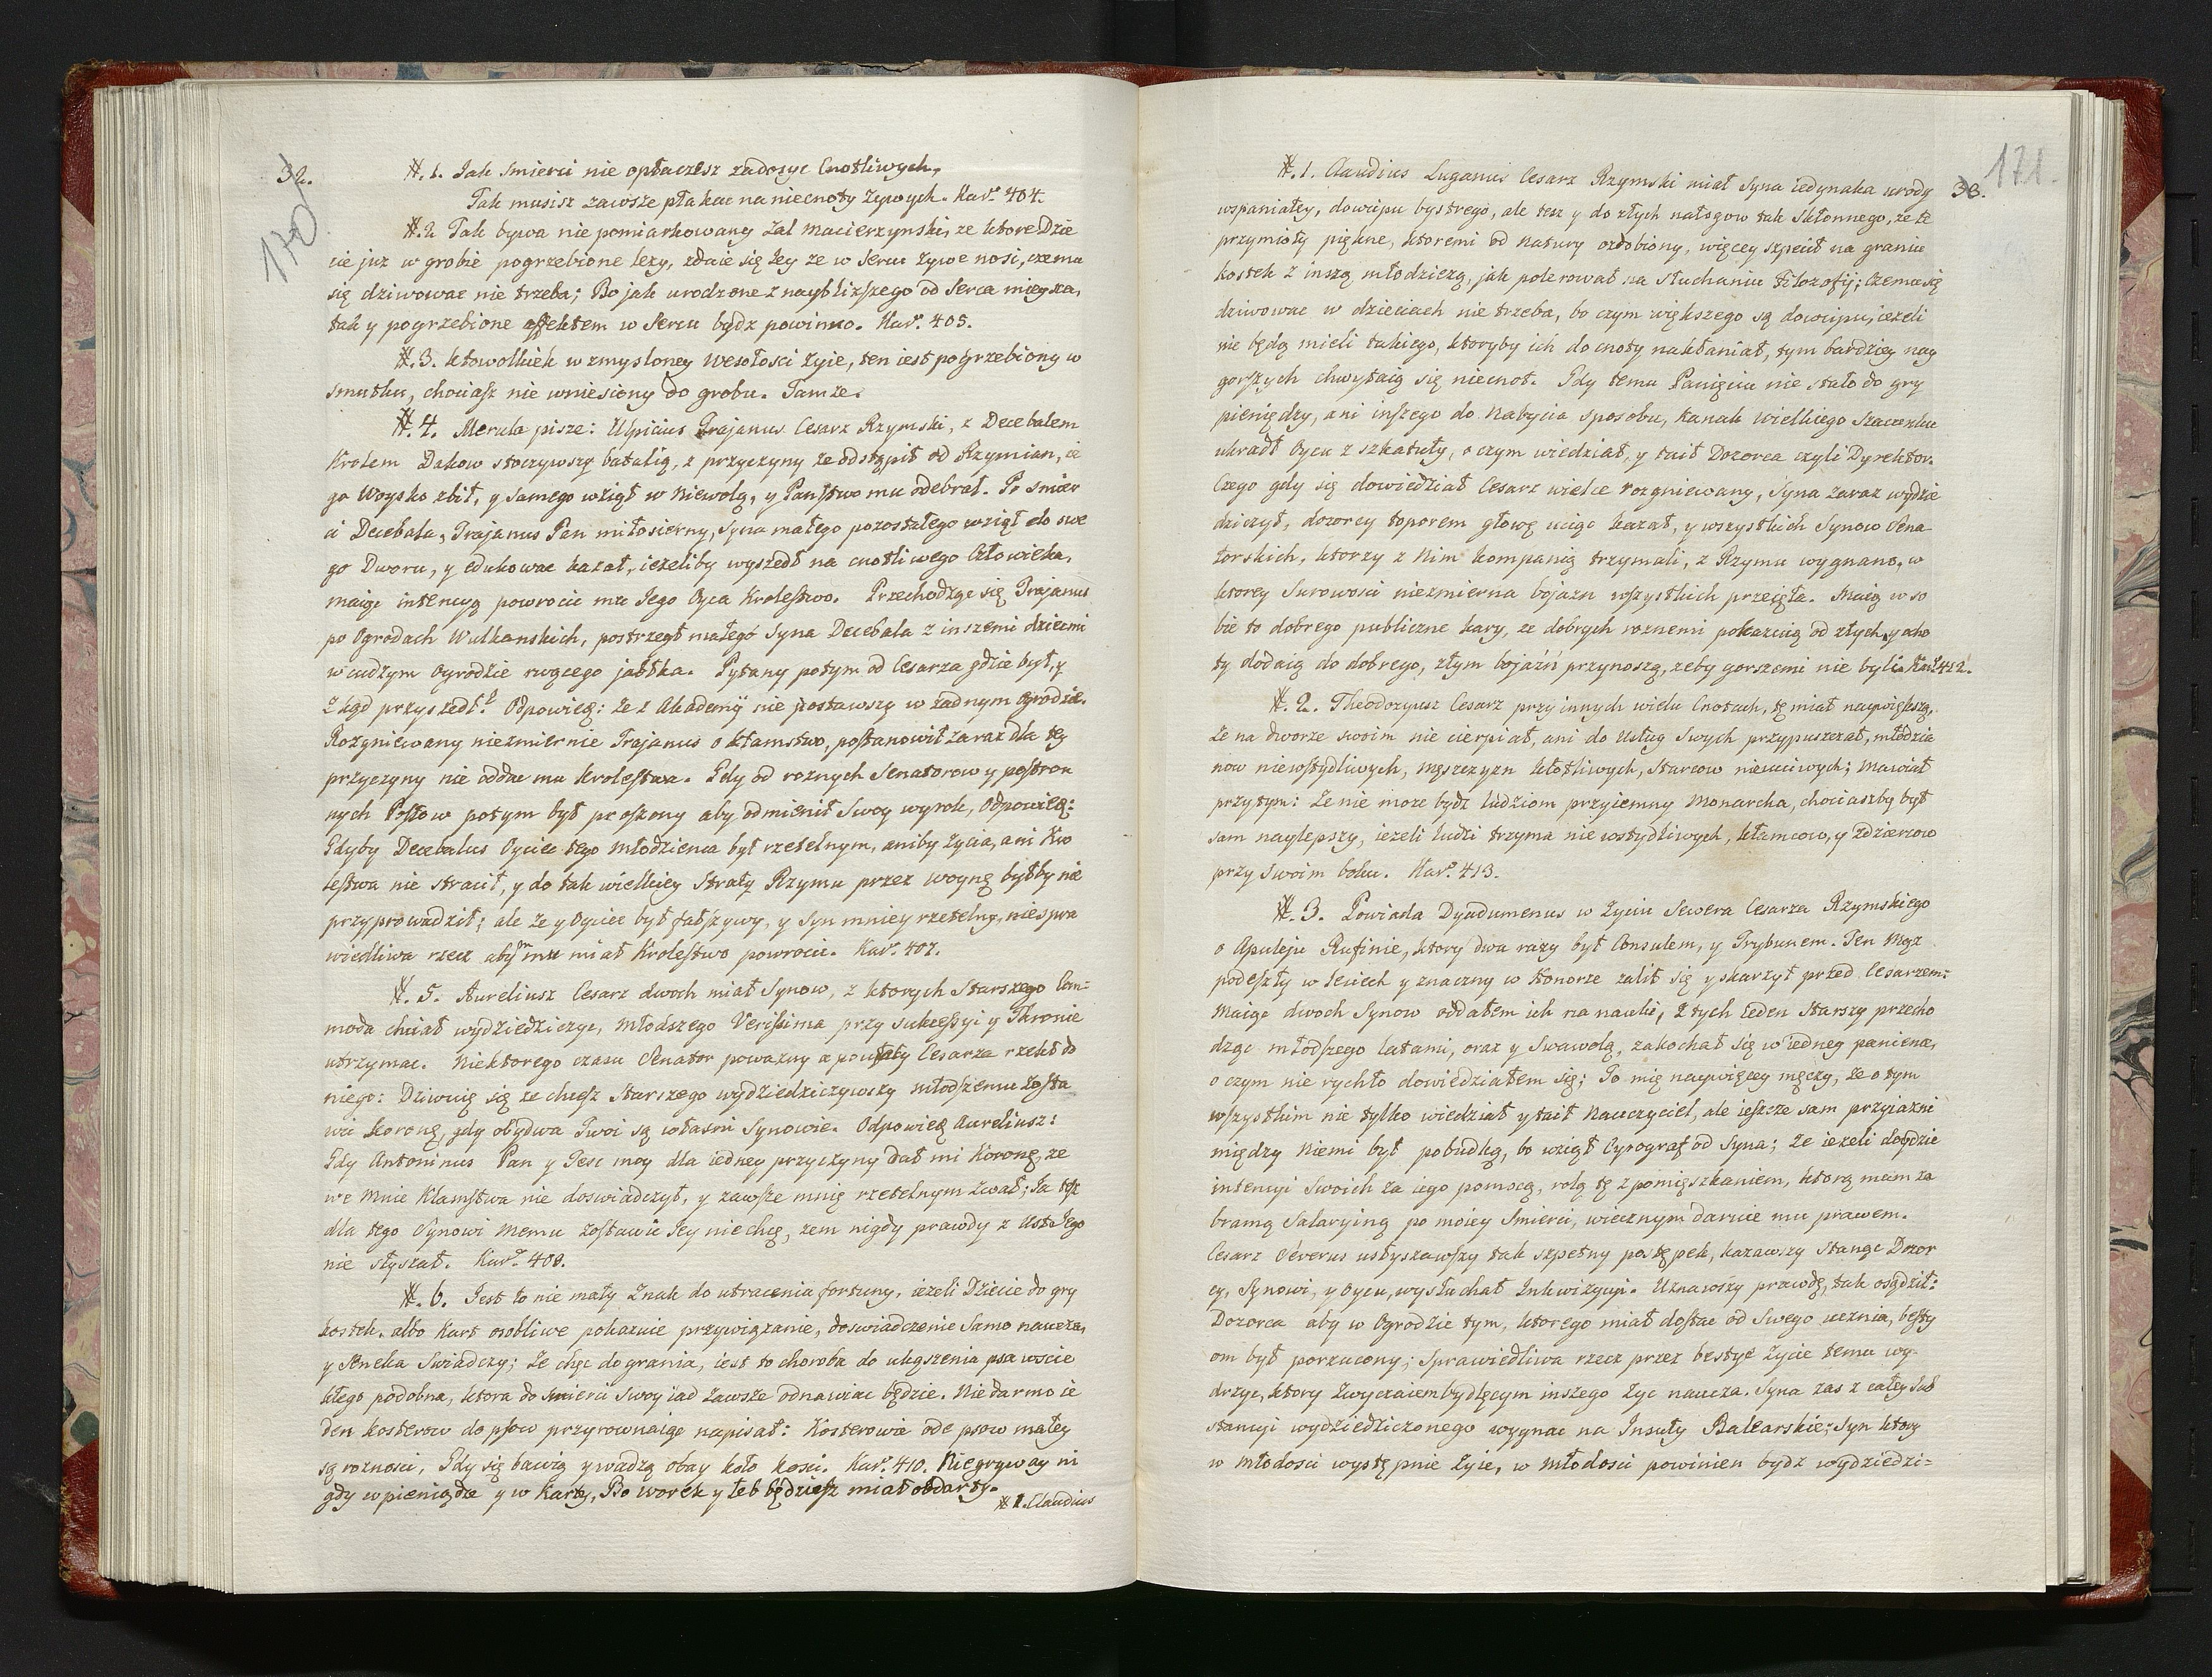 32.
170
#.1. Jak Smierci nie opłaczesz zadosyc Cnotliwych,
Tak musisz zawsze płakac na niecnoty Zywych. Kar. 404.
#.2 Tak bywa nie pomiarkowany Zal Macierzynski, ze ktore Dzie
cie juz w grobie pogrzebione lezy, zdaie się Jey ze w Sercu Zywe nosi, czemu
się dziwowac nie trzeba; Bo jak urodzone z naybliższego od Serca mieysca,
tak y pogrzebione affektem w Sercu bydz powinno. Kar. 405.
#.3. Ktowolkiek w zmysloney Wesołosci Zyie, ten iest pogrzebiony w
smutku, chociasz nie wniesiony do grobu. Tamze.
#.4. Merula pisze: Ulpicius Trajanus Cesarz Rzymski, z Decebalem
Krolem Dakow stoczywszy batalią, z przyczyny ze odstąpił od Rzymian, ie
go Woysko zbił, y samego wziął w Niewolą, y Panstwo mu odebrał. Po smier
ci Decebala, Trajanus Pan miłosierny, Syna małego pozostałego wziął do swe
go Dworu, y edukowac kazał, ieżeliby wyszedł na cnotliwego Człowieka,
maiąc intencyą powrocic mu Jego Oyca Krolestwo. Przechodząc się Trajanus
po Ogrodach Wulkanskich, postrzegł małego Syna Decebala z inszemi dziecmi
w cudzym Ogrodzie rwącego jabłka. Pytany potym od Cesarza gdzie był, y
zkąd przyszedł? Odpowieą: Ze z Akademij nie postawszy w żadnym Ogrodzie.
Rozgniewany niezmiernie Trajanus o kłamstwo, postanowił zaraz dla tey
przyczyny nie oddac mu Krolestwa. Gdy od roznych Senatorow y postron
nych Posłow potym był proszony aby odmienił Swoy wyrok, Odpowieą:
Gdyby Decebalus Oyciec tego Młodzienca był rzetelnym, aniby Zycia, ani Kro
lestwa nie stracił, y do tak wielkiey Straty Rzymu przez woynę byłby nie
przyprowadził; ale że y Oyciec był fałszywy, y Syn mniey rzetelny, niespra
wiedliwa rzecz abym mu miał Krolestwo powrocic. Kar. 407.
#.5. Aureliusz Cesarz dwoch miał Synow, z ktorych Starszego Com-
moda chciał wydziedziczyc, młodszego Verissima przy sukcessyi y Thronie
utrzymac. Niektorego czasu Senator powazny a poufały Cesarza rzekł do
niego: Dziwuię się ze chcesz Starszego wydziedziczywszy młodszemu Zosta
wic Koronę, gdy obydwa Twoi są własni Synowie. Odpowieą Aureliusz:
Gdy Antoninus Pan y Tesc moy dla iedney przyczyny dał mi Koronę, ze
we Mnie Kłamstwa nie doswiadczył, y zawsze mnię rzetelnym zwał; Ja tesz
dla tego Synowi Memu Zostawic Jey niechcę, zem nigdy prawdy z Ust Jego
nie słyszał. Kar. 408.
#.6. Jest to nie mały Znak do utracenia fortuny, iezeli Dziecie do gry
kostek, albo Kart osobliwe pokazuie przywiązanie, doswiadczenie Samo naucza,
y Seneka Swiadczy; Ze chęc do grania, iest to choroba do ukąszenia psa wscie
kłego podobna, ktora do smierci Swoy iad zawsze odnawiac będzie. Niedarmo ie
den kosterow do psow przyrownaiąc napisał: Kosterowie ode psow małey
są roznosci, Gdy się bawią y wadzą obay koło kosci. Kar. 410. Niegryway ni
gdy w pieniądze y w Karty, Bo worek y łeb będziesz miał obdarty.
#1. Claudius
171.
33.
#.1. Claudius Luganus Cesarz Rzymski miał Syna iedynaka urody
wspaniałey, dowcipu bystrego, ale tesz y do złych nałogow tak Skłonnego, ze te
przymioty piękne, ktoremi od Natury ozdobiony, więcey szpecił na graniu
kostek z inszą młodzieżą, jak polerował na Słuchaniu Filozofij; Czemu się
dziwowac w dzieciach nie trzeba, bo czym większego są dowcipu, iezeli
nie będą mieli takiego, ktoryby ich do cnoty nakłaniał, tym bardziey nay
gorszych chwytaią się niecnot. Gdy temu Panięciu nie stało do gry
pieniędzy, ani inszego do Nabycia sposobu, Kanak Wielkiego Szacunku
ukradł Oycu z szkatuły, o czym wiedział, y taił Dozorca czyli Dyrektor.
Czego gdy się dowiedział Cesarz wielce rozgniewany, Syna zaraz wydzie
dziczył, dozorcy toporem głowę uciąc kazał, y wszystkich Synow Sena
torskich, ktorzy z Nim kompanią trzymali, z Rzymu wygnano, w
ktorey Surowosci niezmierna bojazn wszystkich przeięła. Maią w so
bie to dobrego publiczne kary, ze dobrych roznemi pokazuią od złych, y ocho
ty dodaią do dobrego, złym bojaźń przynoszą, zeby gorszemi nie byli. Kar. 412.
#.2. Theodozyusz Cesarz przy innych wielu Cnotach, tę miał naywiększą,
Ze na dworze swoim nie cierpiał, ani do Usług Swych przypuszczał, młodzie
now niewstydliwych, męszczyzn kłotliwych, Starcow nieuczciwych; Mawiał
przytym: Ze nie moze bydz ludziom przyiemny Monarcha, chociaszby był
sam naylepszy, iezeli ludzi trzyma niewstydliwych, kłamcow, y zdziercow
przy Swoim boku. Kar. 413.
#.3. Powiada Dyadumenus w Zyciu Sewera Cesarza Rzymskiego
o Apuleju Rufinie, ktory dwa razy był Consulem, y Trybunem. Ten Mąz
podeszły w leciech y znaczny w Honorze zalił się y skarzył przed Cesarzem:
Maiąc dwoch Synow oddałem ich na naukę, z tych ieden Starszy przecho
dząc młodszego latami, oraz y Swawolą, zakochał się w iedney panience,
o czym nie rychło dowiedziałem się; To mię naywięcey męczy, ze o tym
wszystkim nie tylko wiedział y taił Nauczyciel, ale ieszcze sam przyiazni
między Niemi był pobudką, bo wziął Cyrograf od Syna; Ze iezeli doydzie
intencyi Swoich za iego pomocą, rolą tę z pomięszkaniem, ktorą mam za
bramą Salaryiną po moiey Smierci, wiecznym daruie mu prawem.
Cesarz Severus usłyszawszy tak szpetny postępek, kazawszy Stanąc Dozor
cy, Synowi, y Oycu, wysłuchał Inkwizycyi. Uznawszy prawdę, tak osądził:
Dozorca aby w Ogrodzie tym, ktorego miał dostac od Swego ucznia, besty
om był porzucony; Sprawiedliwa rzecz przez bestye Zycie temu wy-
drzyc, ktory Zwyczaiem bydlęcym inszego Zyc naucza. Syna zas z całey Sub
stancyi wydziedziczonego wygnac na Insuły Balearskie; Syn ktory
w Młodosci występnie Zyie, w Młodosci powinien bydz wydziedzi-